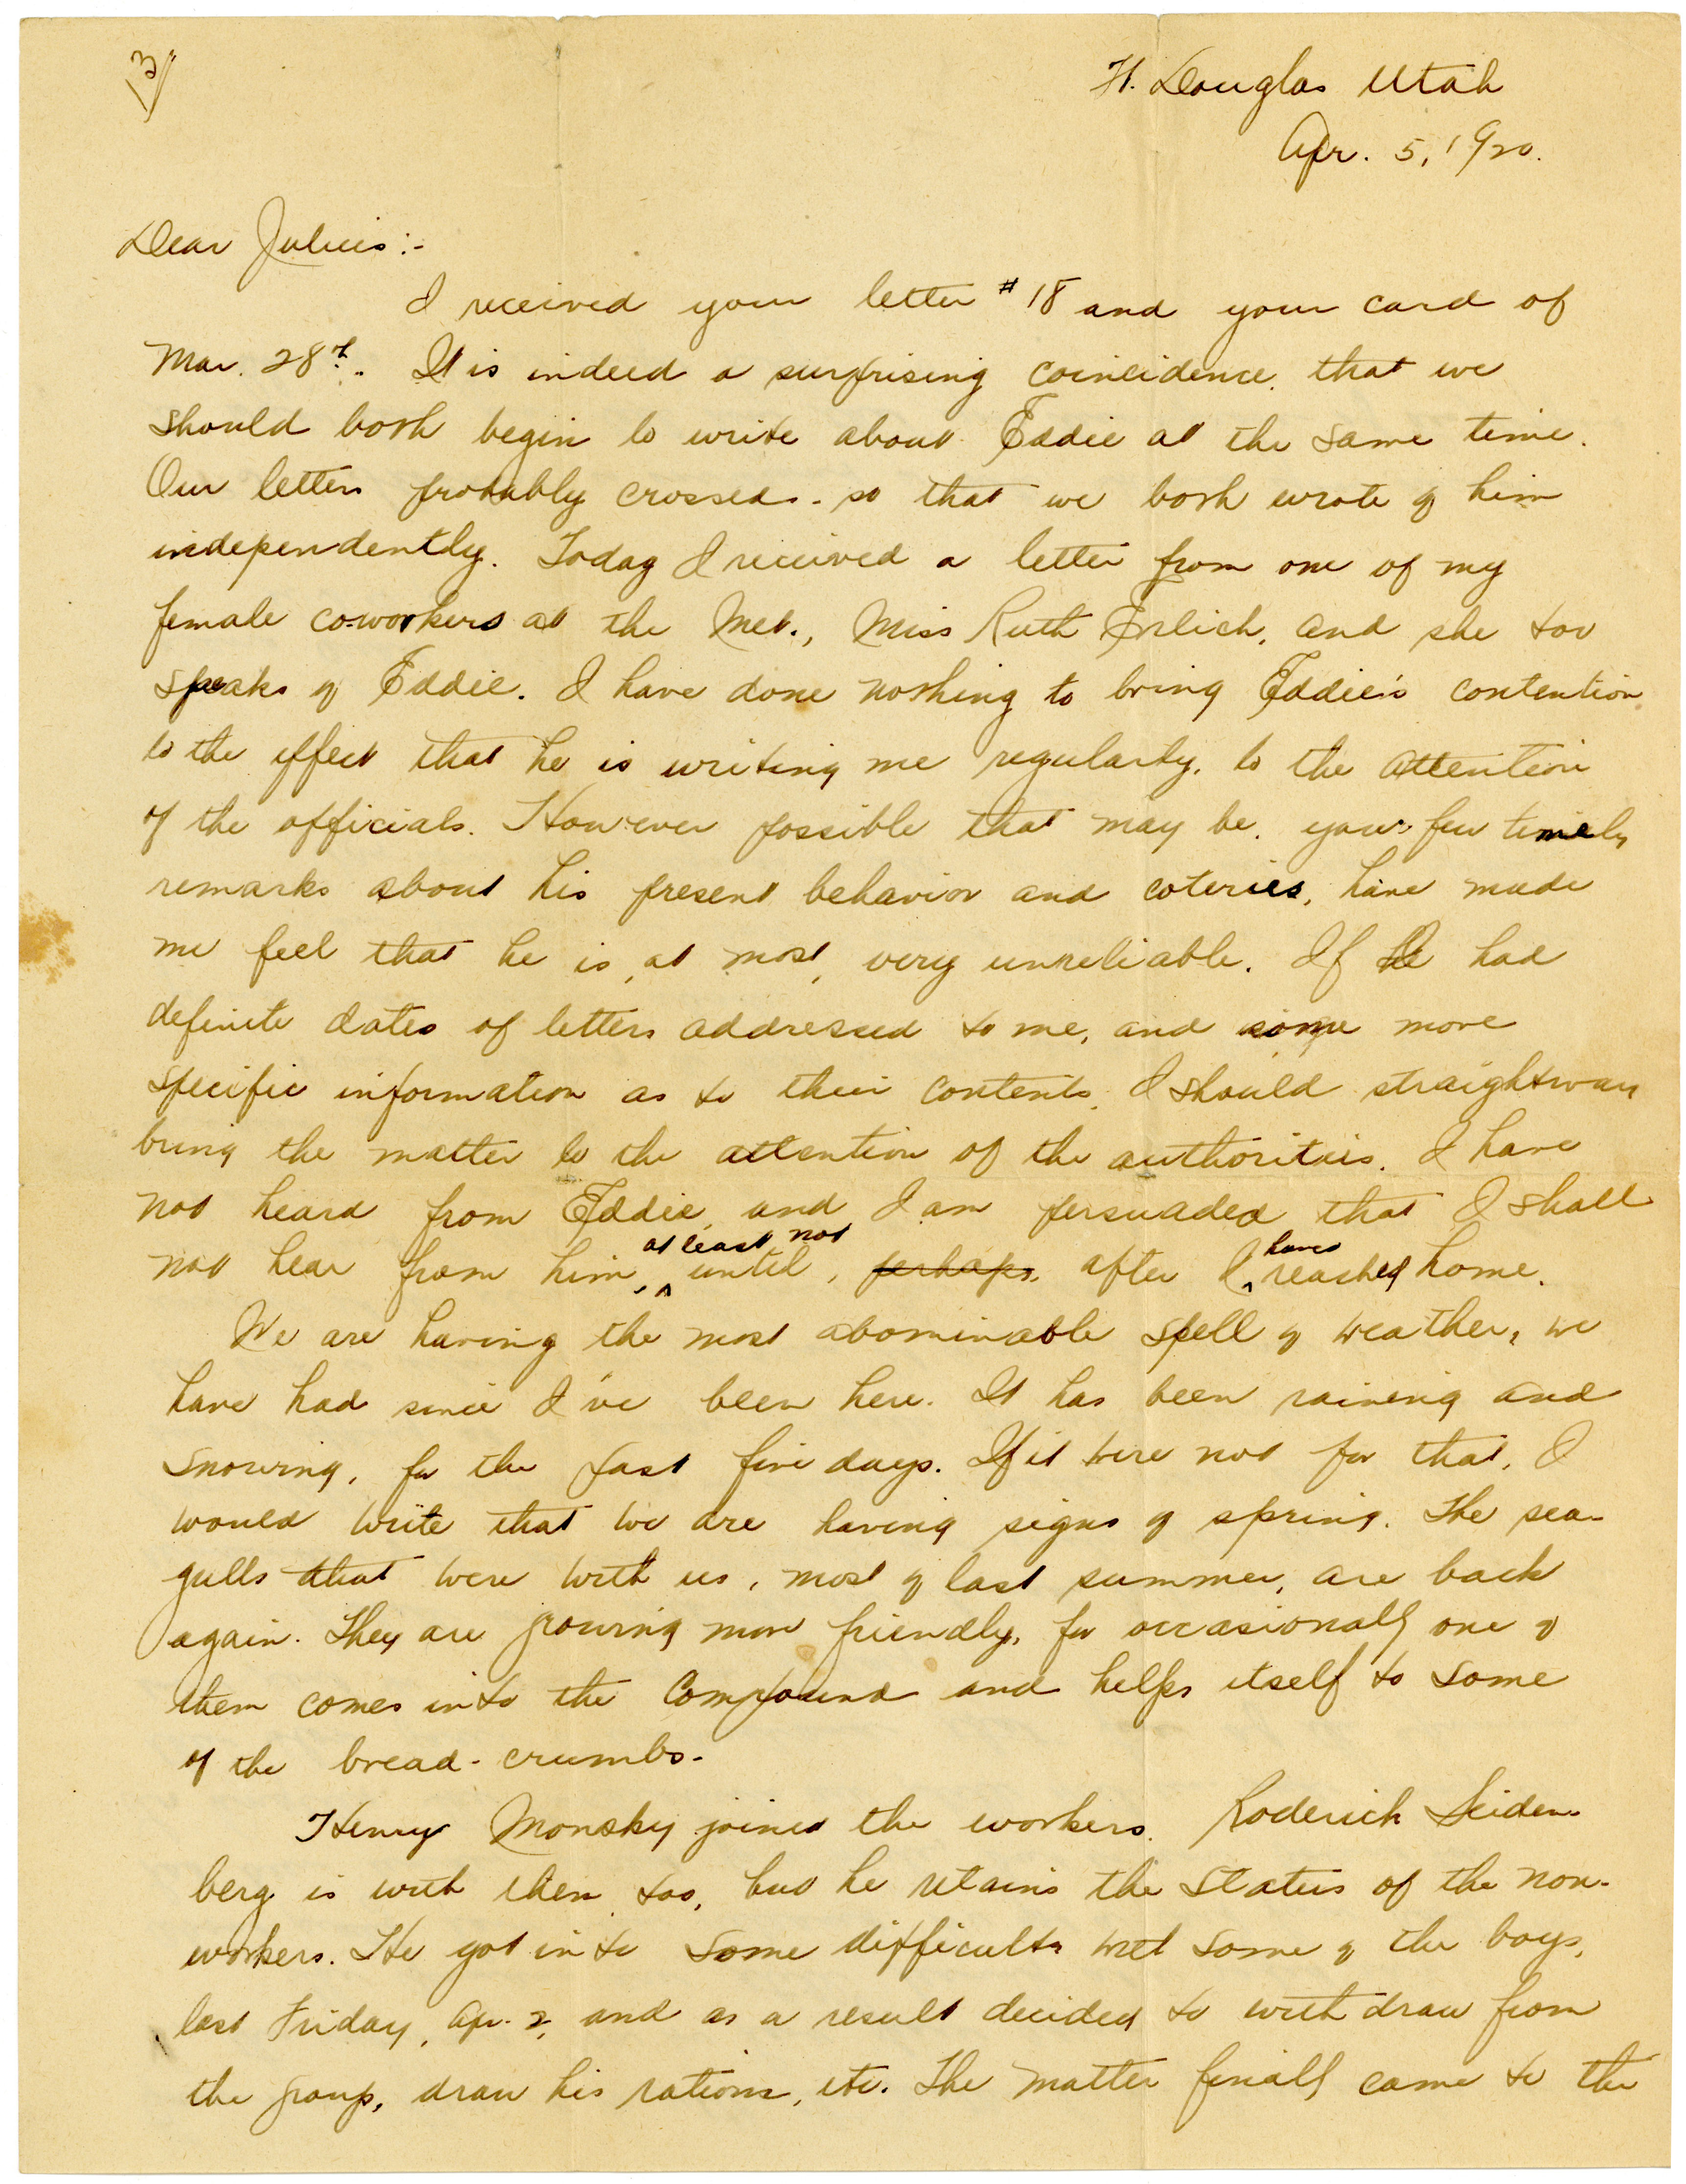 13/
Ft. Douglas Utah
Apr. 5, 1920.
Dear Julius:-
I received your letter #18 and your card of
Mar. 28th. It is indeed a surprising coincidence, that we
should both begin to write about Eddie at the same time.
Our letters probably crossed - so that we both wrote of him
independently. Today I received a letter from one of my
female co-workers at the Met., Miss Ruth Erlich, and she too
speaks of Eddie. I have done nothing to bring Eddie's contention
to the effect that he is writing me regularly, to the attention
of the officials. However possible that may be, your few timely
remarks about his present behavior and coteries, have made
me feel that he is, at most, very unreliable. If he had
definite dates of letters addressed to me, and some more
specific information as to their contents, I should straightway
bring the matter to the attention of the authorities. I have
not heard from Eddie, and I am persuaded that I shall
not hear from him, at least not until, perhaps, after I have reached home.
We are having the most abominable spell of weather, we
have had since I've been here. It has been raining and
snowing, for the past five days. If it were not for that, I
would write that we are having signs of spring. The sea-
gulls that were with us, most of last summer, are back
again. They are growing more friendly, for occasionally one of
them comes into the Compound and helps itself to some
of the bread-crumbs.
Henry Monsky joined the workers. Roderick Seiden-
berg is with them too, but he retains the status of the non-
workers. He got into some difficulty with some of the boys,
last Friday, Apr. 2, and as a result decided to withdraw from
the group, draw his rations, etc. The matter finally came to the